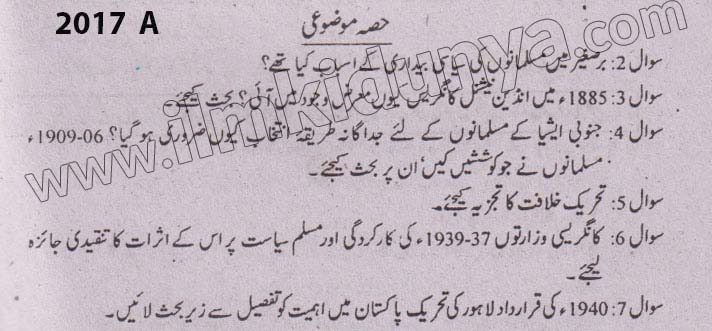 2017 A
حصہ موضوعی
سوال 2: برصغیر میں مسلمانوں کی سیاسی بیداری کے اسباب کیا تھے؟
سوال 3: 1885ء میں انڈین نیشنل کانگریس کیوں معرض وجود میں آئی؟ بحث کیجئے۔
سوال 4: جنوبی ایشیا کے مسلمانوں کے لئے جداگانہ طریقہ انتخاب کیوں ضروری ہو گیا؟ 06-1909ء
مسلمانوں نے جو کوششیں کیں‘ ان پر بحث کیجئے۔
سوال 5: تحریک خلافت کا تجزیہ کیجئے۔
سوال 6: کانگریسی وزارتوں 37-1939ء کی کارکردگی اور مسلم سیاست پر اس کے اثرات کا تنقیدی جائزہ
لیجئے۔
سوال 7: 1940ء کی قرارداد لاہور کی تحریک پاکستان میں اہمیت کو تفصیل سے زیر بحث لائیں۔
www.ilmkidunya.com